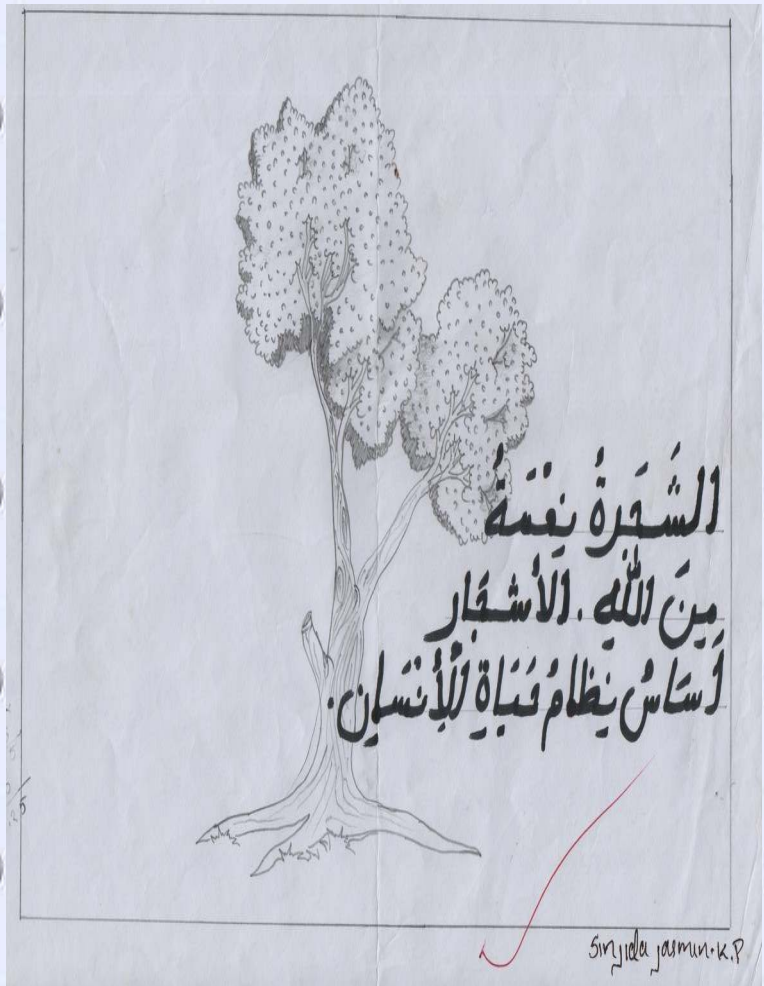 الشَّجَرةُ نِعْمَةُ
مِنَ اللّٰهِ. الَأشجَار
أَسَاسُ نِظامُ حَيَاةِ لْلِأنْسَان.
Sinjida Jasmin.K.P